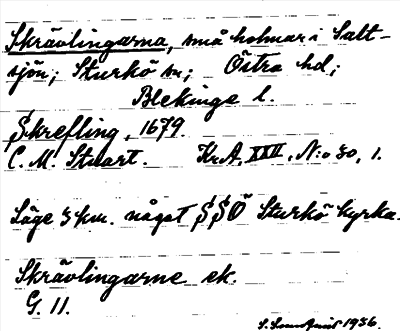 Skrävlingarna, små holmar i Salt-
sjön; Sturkö sn; Östra hd;
Blekinge l.
Skrefling, 1679.
C. M. Stuart. Kr.A. XXII, N:o 30, 1.
Läge 3 km. något SSÖ Sturkö kyrka.
Skrävlingarne ek.
G. 11.
1936.